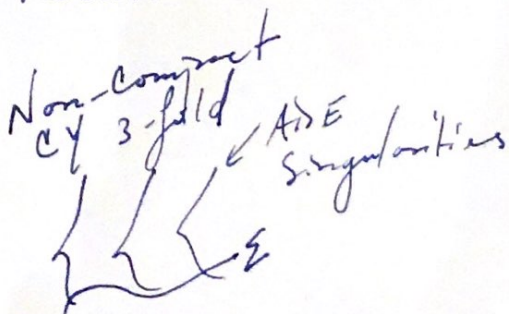 Non-compact
CY 3-fold
ADE
Singularities
Σ